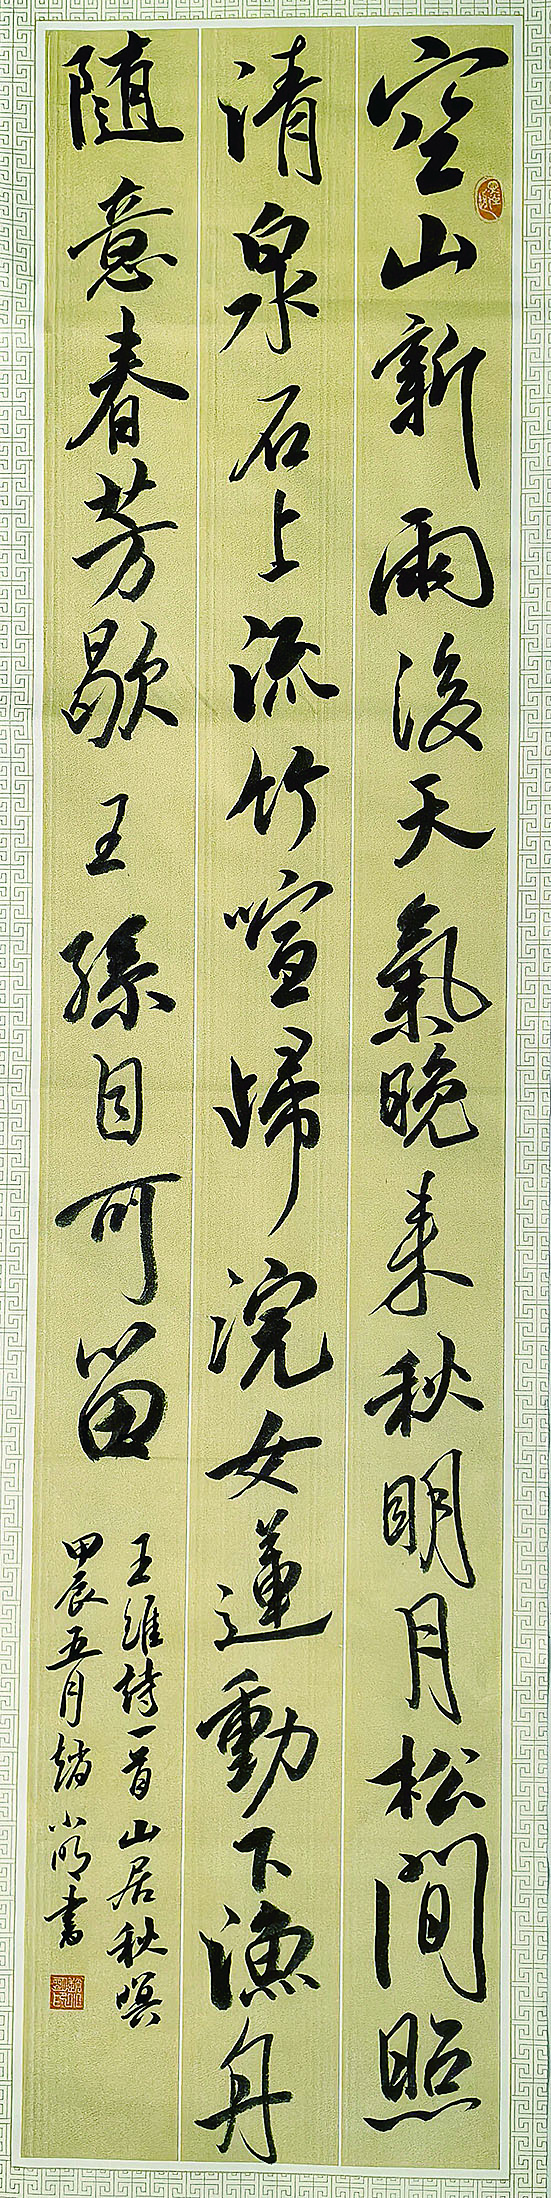 空山新雨後天氣晚来秋明月松間照
清泉石上流竹喧歸浣女蓮動下漁舟
随意春芳歇王孫自可留
王維詩一首山居秋暝
甲辰五月趙小明書